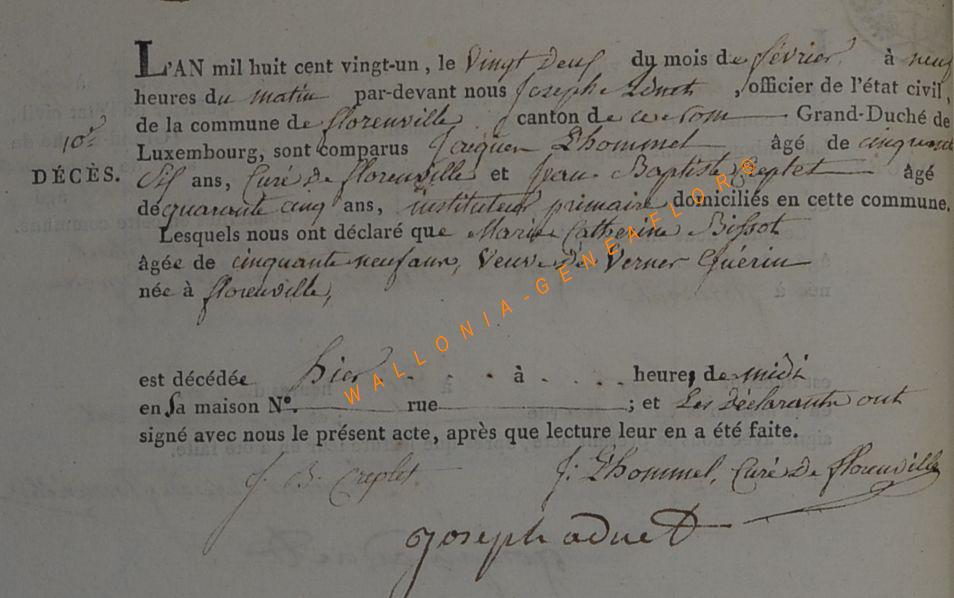 L'AN mil huit cent vingt-un, le Vingt Deux du mois de février à neuf
heures du matin par-devant nous Joseph Adnet, officier de l'état civil,
de la commune de florenville canton de Grand-Duché de
10e
DÉCÈS.
Luxembourg, sont comparus Jacques Lhommel âgé de cinquante
Six ans, Curé De florenville et Jean Baptiste Creplet âgé
de quarante cinq ans, instituteur primaire domiciliés en cette commune.
Lesquels nous ont déclaré que Marie Catherine Bissot
âgée de cinquante neuf ans, Veuve De Verner Guérin
née à florenville,
est décédée hier . . . à . . . . heures de midi
en Sa maison N°. rue ; et Les Déclarants ont
signé avec nous le présent acte, après que lecture leur en a été faite.
J. B. Creplet J: Lhommel, Curé De florenville
joseph adnet
WALLONIA-GENEAFLORE